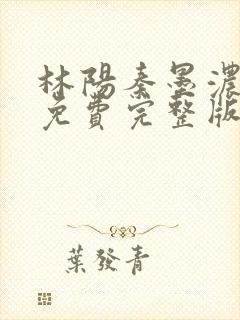 林陽秦墨濃
免費完整版
葉發青